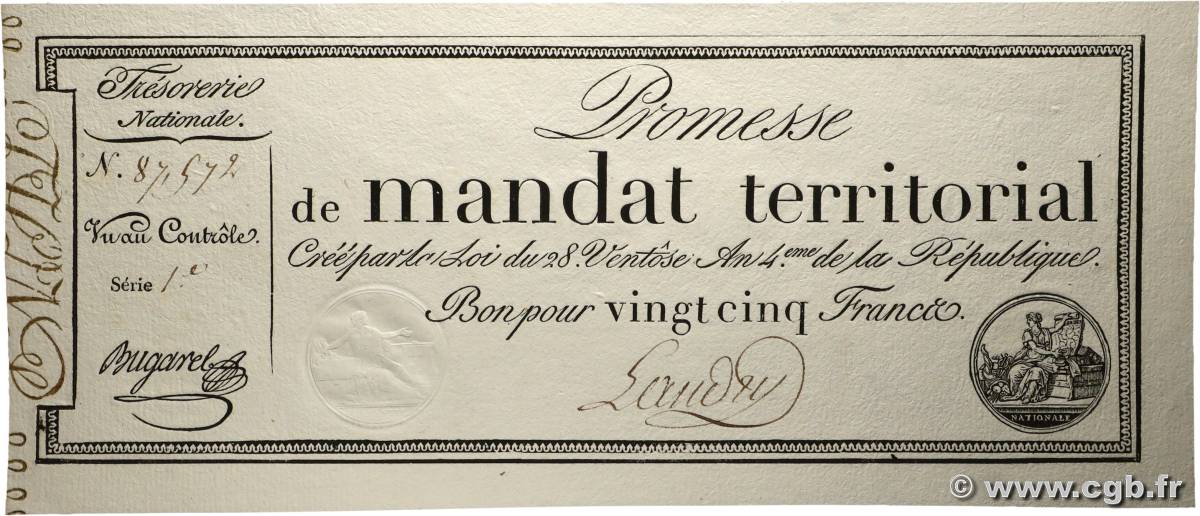 Trésorerie
Nationale.
N. 87,572
Vu au Contrôle.
Série 1.e
Bugarel
Promesse
de mandat territorial
Créé par la Loi du 28. Ventôse An 4.eme de la République.
Bon pour vingt cinq Francs.
Laudry
NATIONALE
© www.cgb.fr